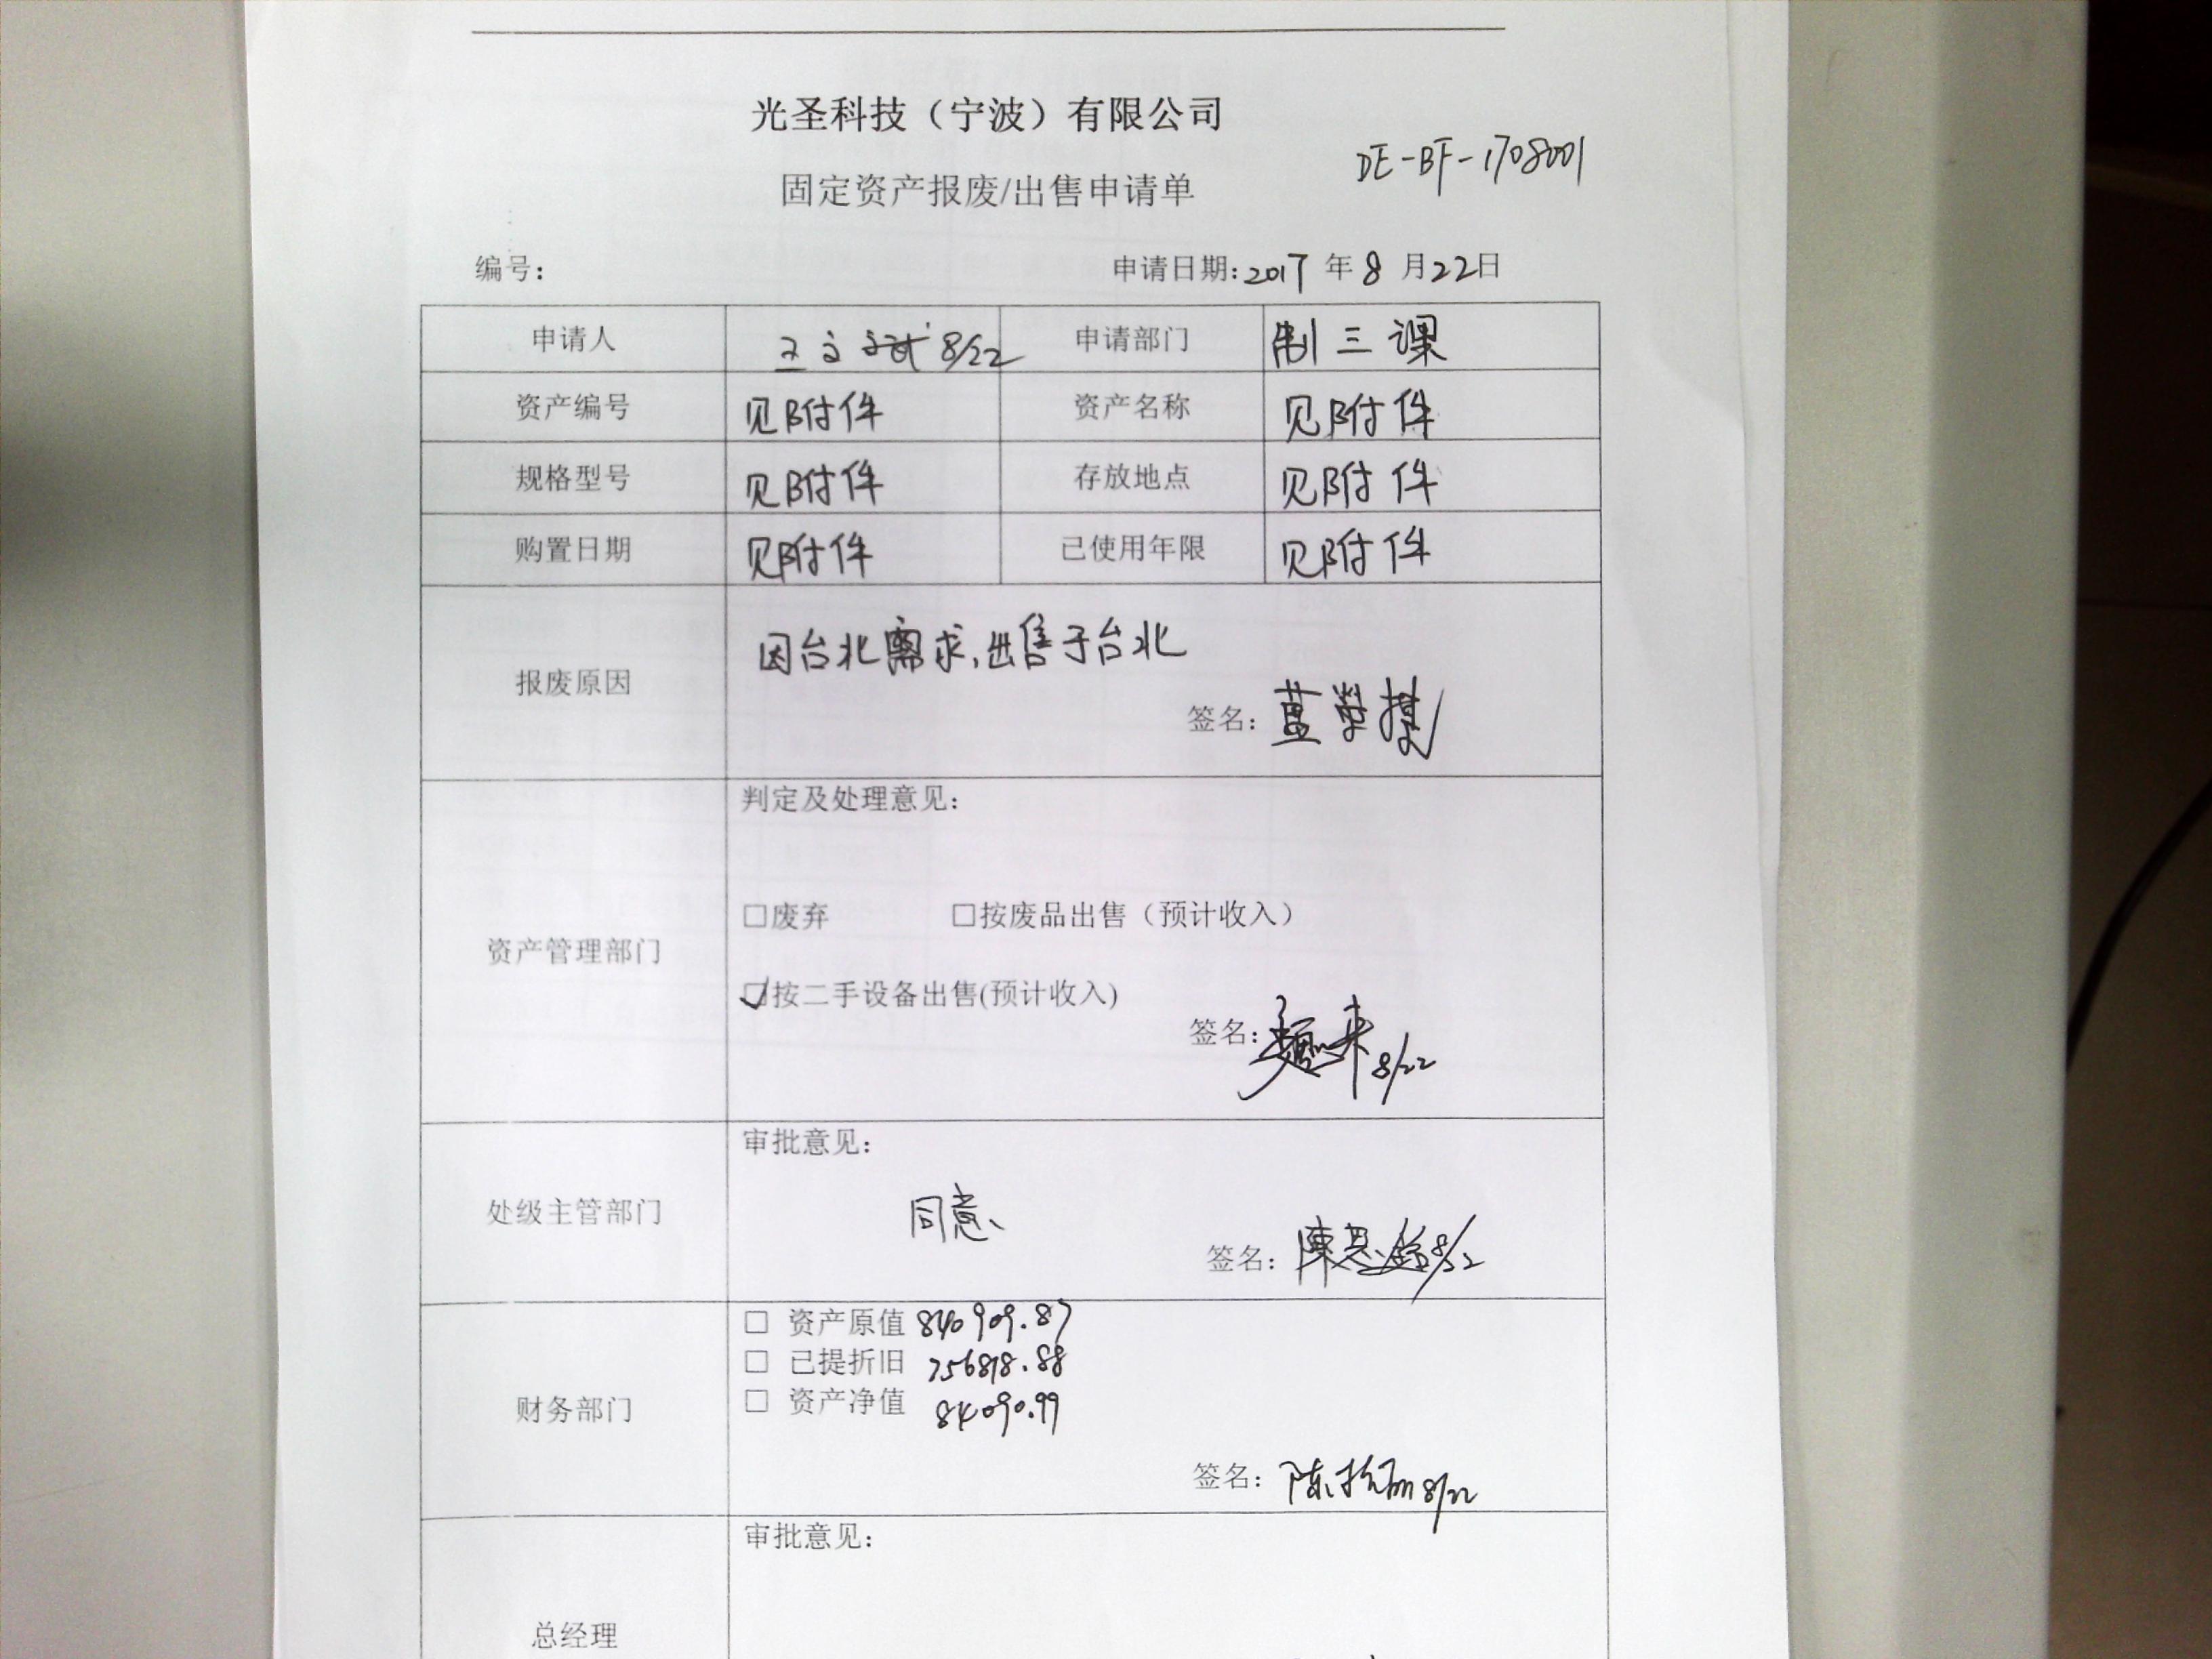 光圣科技（宁波）有限公司
DE-BF-1708001
固定资产报废/出售申请单
编号： 申请日期：2017 年 8 月 22 日
申请人 8/22 申请部门 制三课
资产编号 见附件 资产名称 见附件
规格型号 见附件 存放地点 见附件
购置日期 见附件 已使用年限 见附件
报废原因 因台北需求,出售于台北
签名：
资产管理部门 判定及处理意见：
□废弃 □按废品出售（预计收入）
☑按二手设备出售(预计收入)
签名： 8/22
处级主管部门 审批意见：
同意、
签名： 8/22
财务部门 □ 资产原值 840909.87
□ 已提折旧 756818.88
□ 资产净值 84090.99
签名： 8/22
总经理 审批意见：